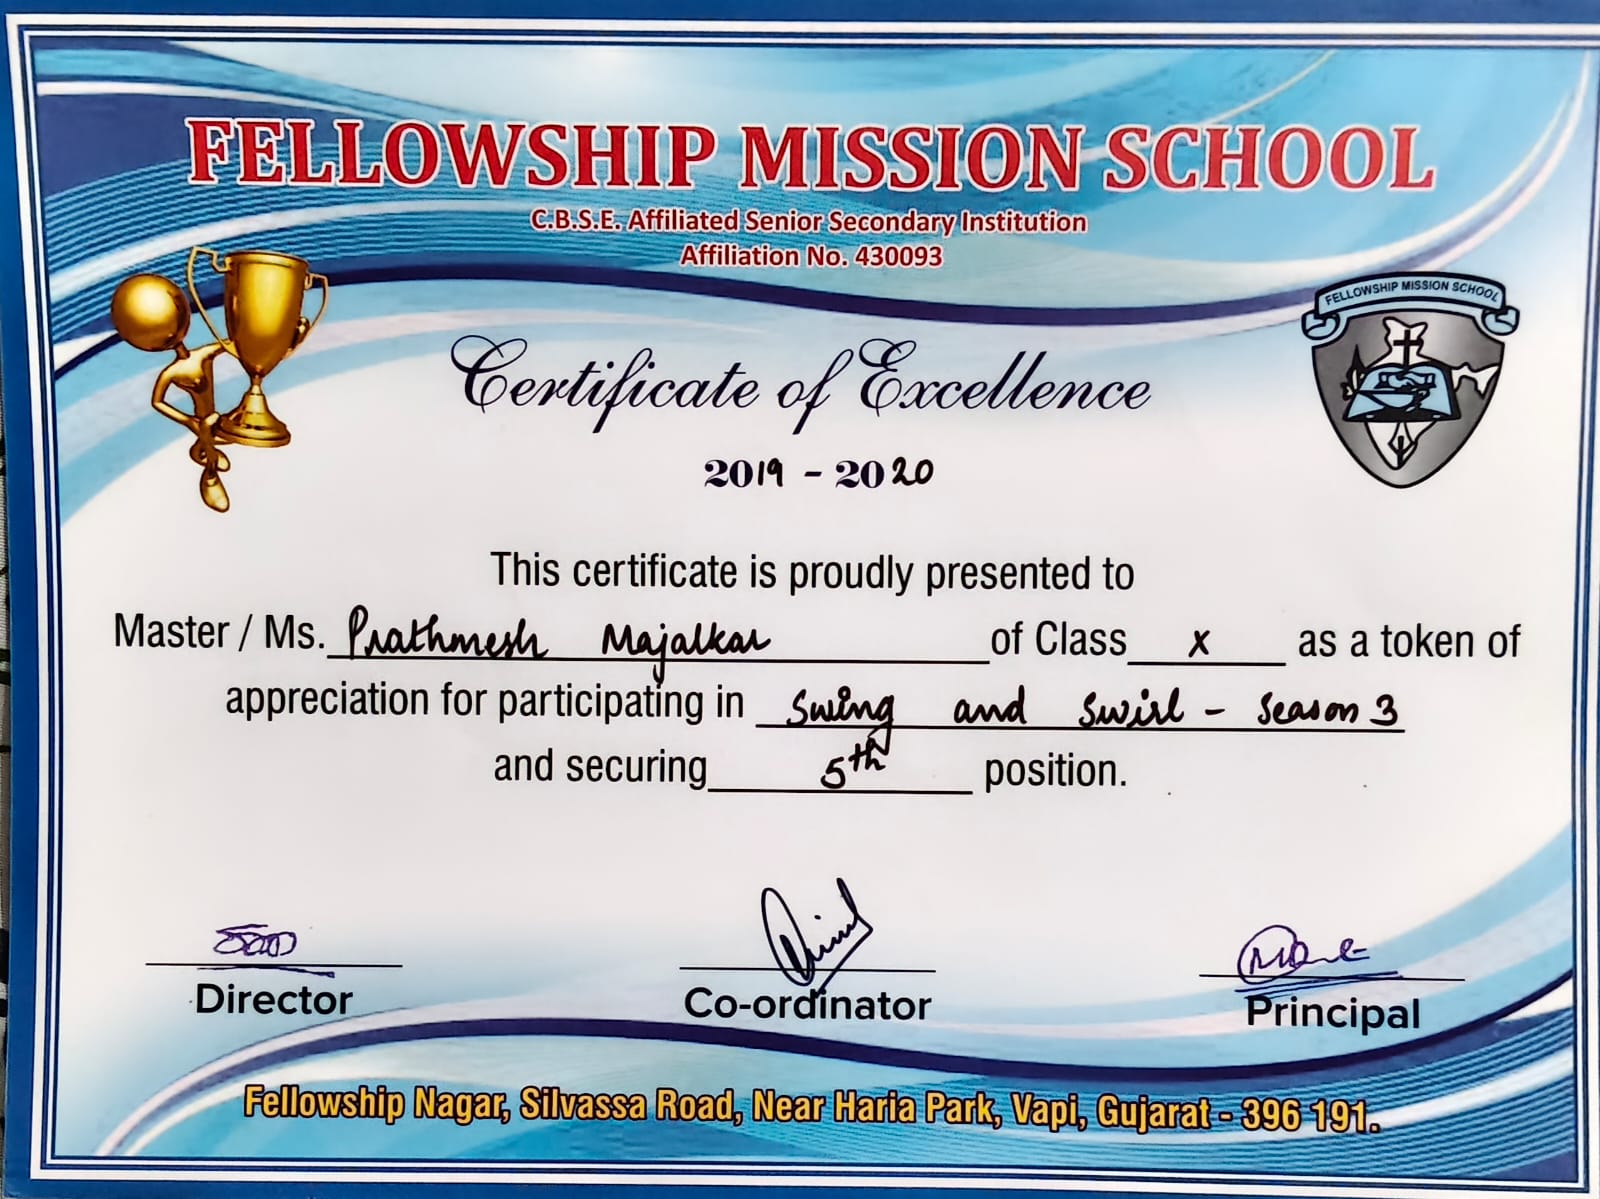 FELLOWSHIP MISSION SCHOOL
C.B.S.E. Affiliated Senior Secondary Institution
Affiliation No. 430093
FELLOWSHIP MISSION SCHOOL
Certificate of Excellence
2019 - 2020
This certificate is proudly presented to
Master / Ms. Prathmesh Majalkar of Class X as a token of
appreciation for participating in Swing and Swirl - Season 3
and securing 5th position.
Director
Co-ordinator
Principal
Fellowship Nagar, Silvassa Road, Near Haria Park, Vapi, Gujarat - 396 191.